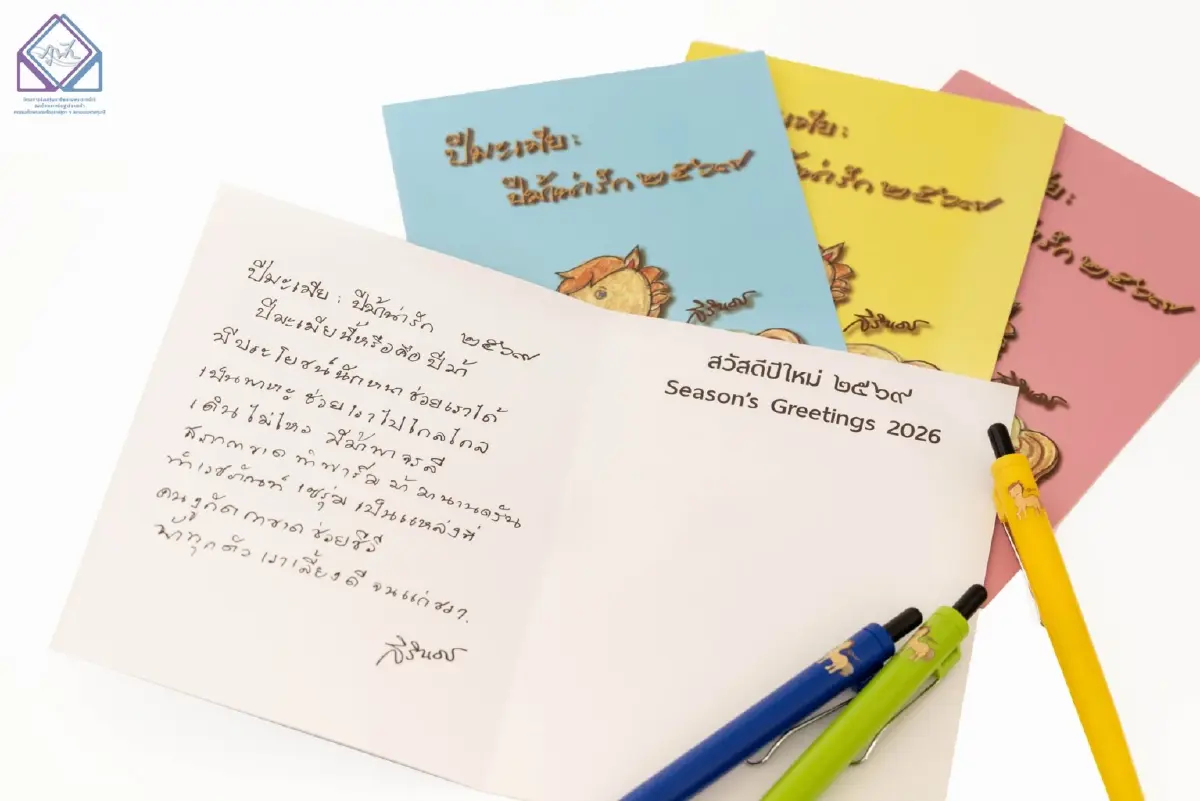 ปีมะเมีย :
ปีม้าน่ารัก ๒๕๖๙
มะเมีย :
ม้าน่ารัก ๒๕๖๙
รัก ๒๕๖๙
สิรินธร
สิรินธร
ปีมะเมีย : ปีม้าน่ารัก ๒๕๖๙
ปีมะเมียนี้หรือคือ ปีม้า
มีประโยชน์นักหนา ช่วยเราได้
เป็นพาหะ ช่วยเราไปไกลไกล
เดินไม่ไหว มีม้าพาจรลี
สภากาชาด ทำฟาร์ม ม้ามานานครัน
ทำเวชภัณฑ์ เซรุ่ม เป็นแหล่งที่
คนงูกัด กาชาด ช่วยชีวี
ม้าทุกตัว เราเลี้ยงดี จนแก่ชรา.
สิรินธร
สวัสดีปีใหม่ ๒๕๖๙
Season's Greetings 2026